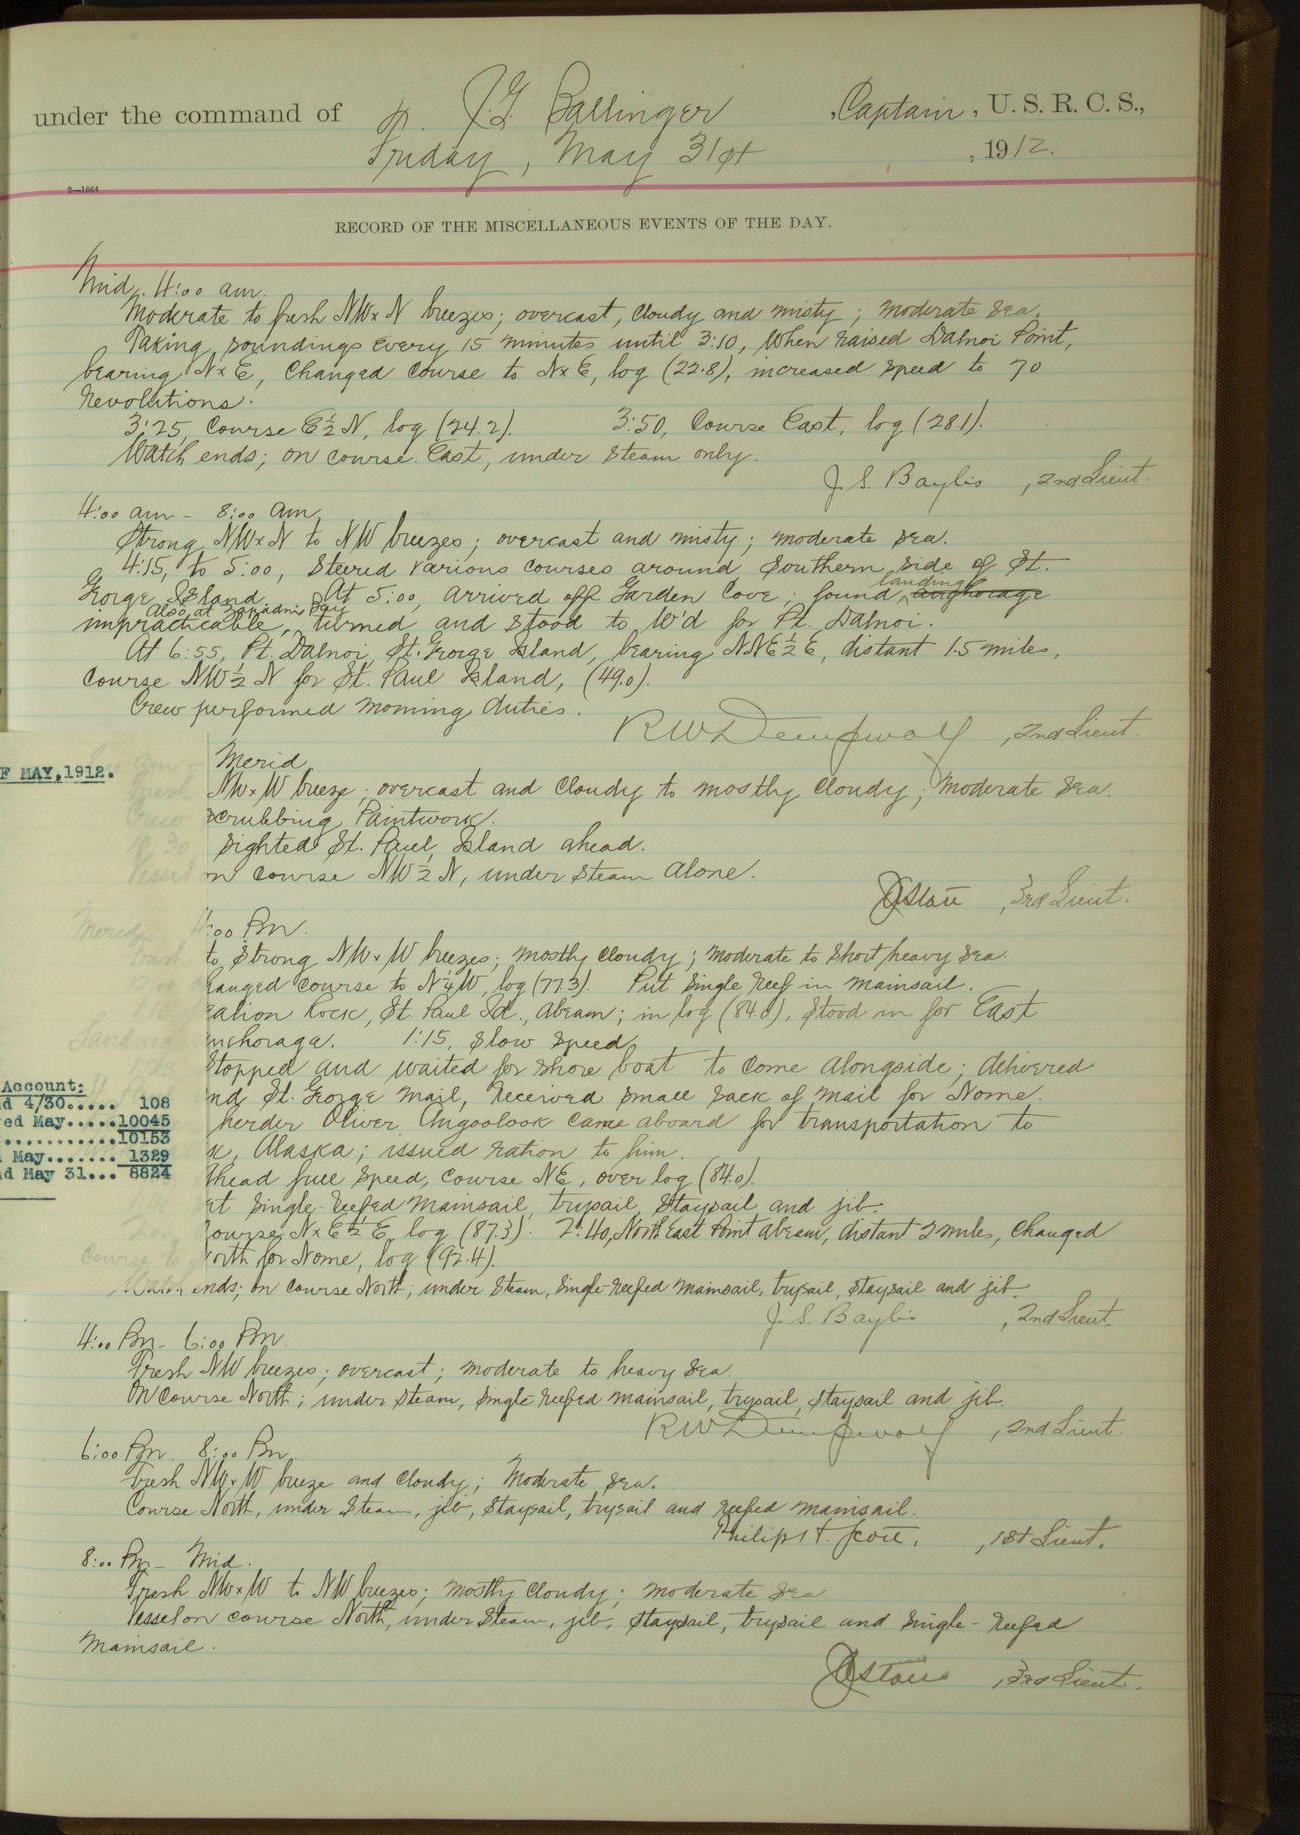 under the command of J. G. Ballinger , Captain , U. S. R. C. S.,
Friday , May 31st , 1912.
2—1664
RECORD OF THE MISCELLANEOUS EVENTS OF THE DAY.
Mid. 4:00 am.
Moderate to fresh NWxN breezes; overcast, cloudy and misty; moderate sea.
Taking soundings every 15 minutes until 3:10, when raised Dalnoi Point,
bearing NxE, changed course to NxE, log (22.8), increased speed to 70
revolutions.
3:25, course E½N, log (24.2). 3:50, Course East, log (28.1).
Watch ends; on course East, under steam only.
J. S. Baylis , 2nd Lieut.
4:00 am - 8:00 am.
Strong NWxN to NW breezes; overcast and misty; moderate sea.
4:15, to 5:00, steered various courses around Southern side of St.
landing
George Island. At 5:00, arrived off Garden Cove; found anchorage
also at Zapadni Bay
impracticable, turned and stood to W'd for Pt. Dalnoi.
At 6:55, Pt. Dalnoi, St. George Island, bearing NNE½E, distant 1.5 miles,
course NW½N for St. Paul Island, (49.0).
Crew performed morning duties.
RW Dempwolf , 2nd Lieut.
F MAY, 1912.
Merid
NWxW breeze; overcast and cloudy to mostly cloudy; moderate sea.
scrubbing paintwork.
Sighted St. Paul Island ahead.
on course NW½N, under steam alone.
, 3rd Lieut.
4:00 Pm.
to strong NWxW breezes; mostly cloudy; moderate to short heavy sea.
hanged course to N¼W, log (77.3). Put single reef in mainsail.
eation Rock, St. Paul Id., abeam; in log (84.0). Stood in for East
nchorage. 1:15, slow speed,
Stopped and waited for shore boat to come alongside; delivered
nd St. George mail, received small sack of mail for Nome.
herder Oliver Angoolook came aboard for transportation to
k, Alaska; issued ration to him.
Ahead full speed, course NE, over log (84.0).
et single-reefed mainsail, trysail, staysail, and jib.
course NxE½E, log (87.3). 2:40, North East Point abeam, distant 2 miles, changed
orth for Nome, log (92.4).
Watch ends; on course North; under steam, single-reefed mainsail, trysail, staysail and jib.
J. S. Baylis , 2nd Lieut.
Account:
d 4/30..... 108
ed May.....10045
...........10153
May....... 1329
d May 31... 8824
4:00 Pm - 6:00 Pm.
Fresh NW breezes; overcast; moderate to heavy sea.
On course North; under steam, single reefed mainsail, trysail, staysail and jib.
RW Dempwolf , 2nd Lieut.
6:00 Pm. 8:00 Pm.
Fresh NWxW breeze and cloudy; moderate sea.
Course North, under steam, jib, staysail, trysail and reefed mainsail.
Philip H. Scott. , 1st Lieut.
8:00 Pm - Mid.
Fresh NWxW to NW breezes; mostly cloudy; moderate sea
Vessel on course North, under steam, jib, staysail, trysail and single-reefed
mainsail.
, 3rd Lieut.